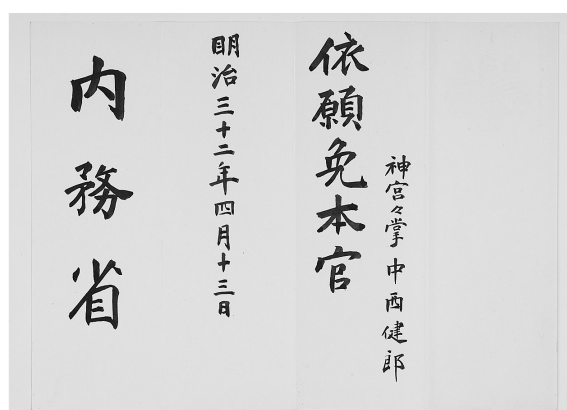 神宮々掌中西健郎
依願免本官
明治三十二年四月十三日
内務省